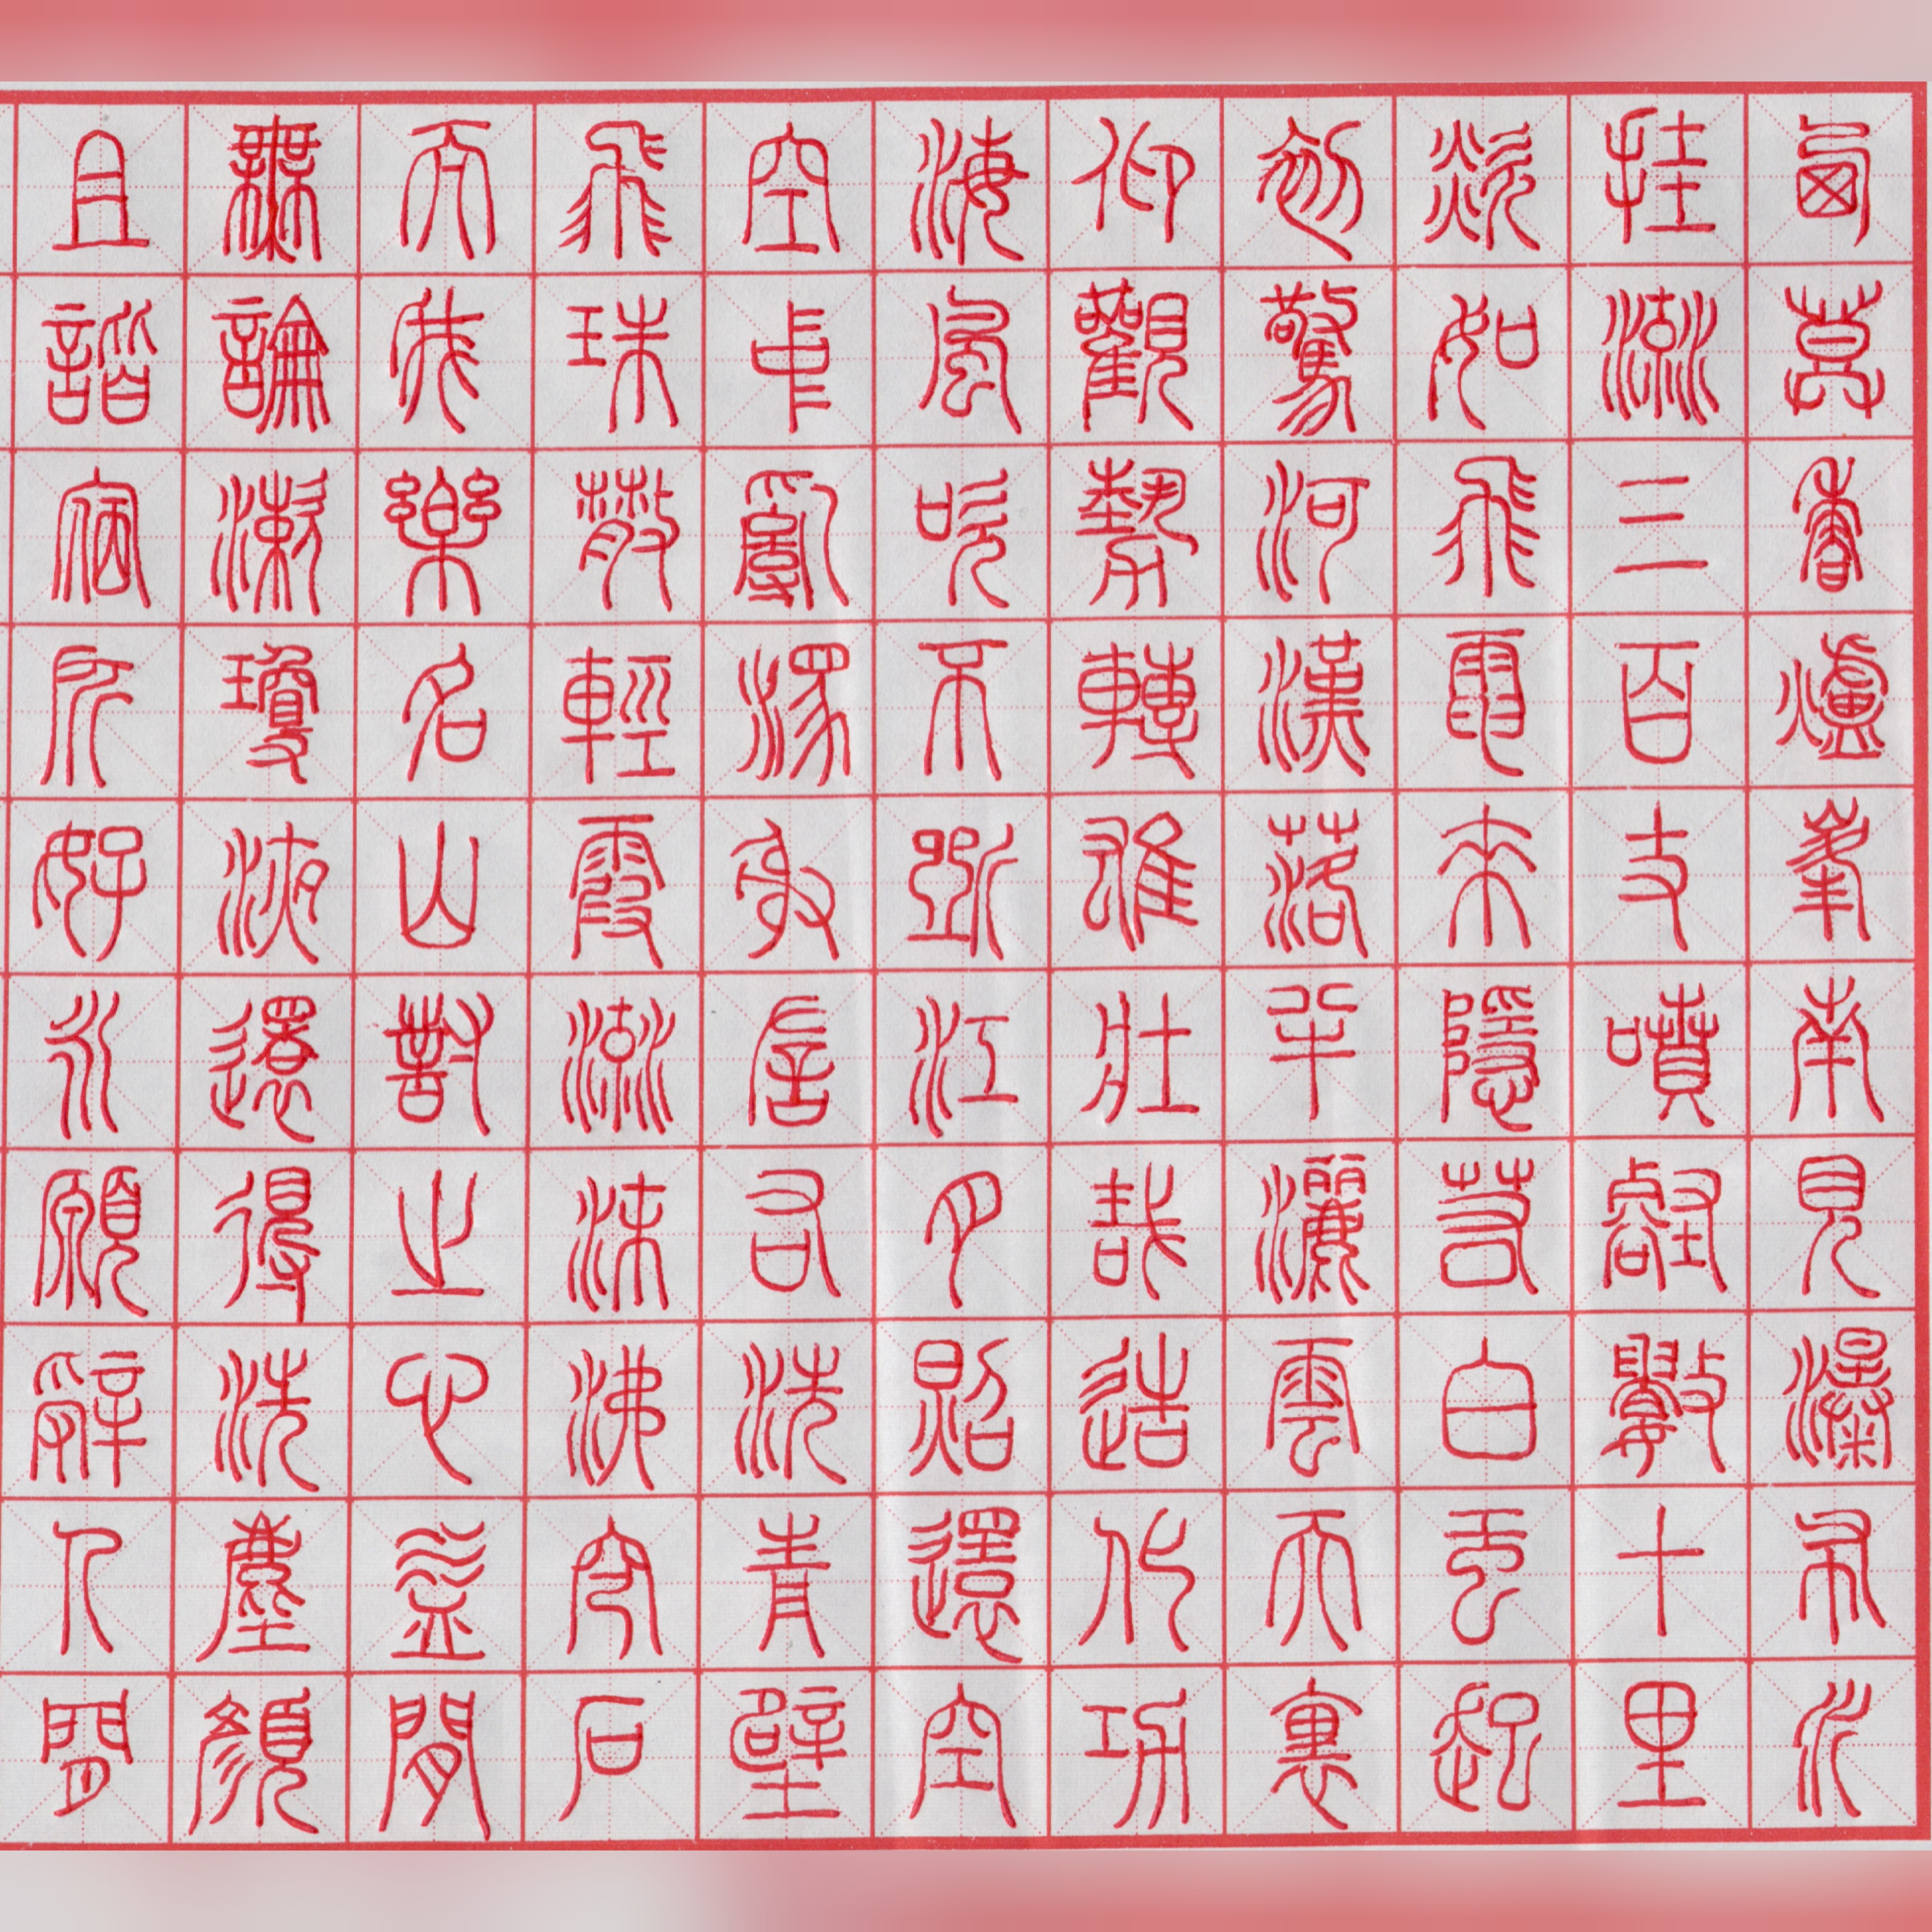 西莫香爐峯南見瀑布水
挂流三百丈噴壑數十里
欻如飛電來隱若白虹起
初驚河漢落半灑雲天裏
仰觀勢轉雄壯哉造化功
海風吹不斷江月照還空
空中亂潈射左右洗青壁
飛珠散輕霞流沫沸穹石
而我樂名山對之心益閒
無論漱瓊液還得洗塵顏
且諧宿所好永願辭人間